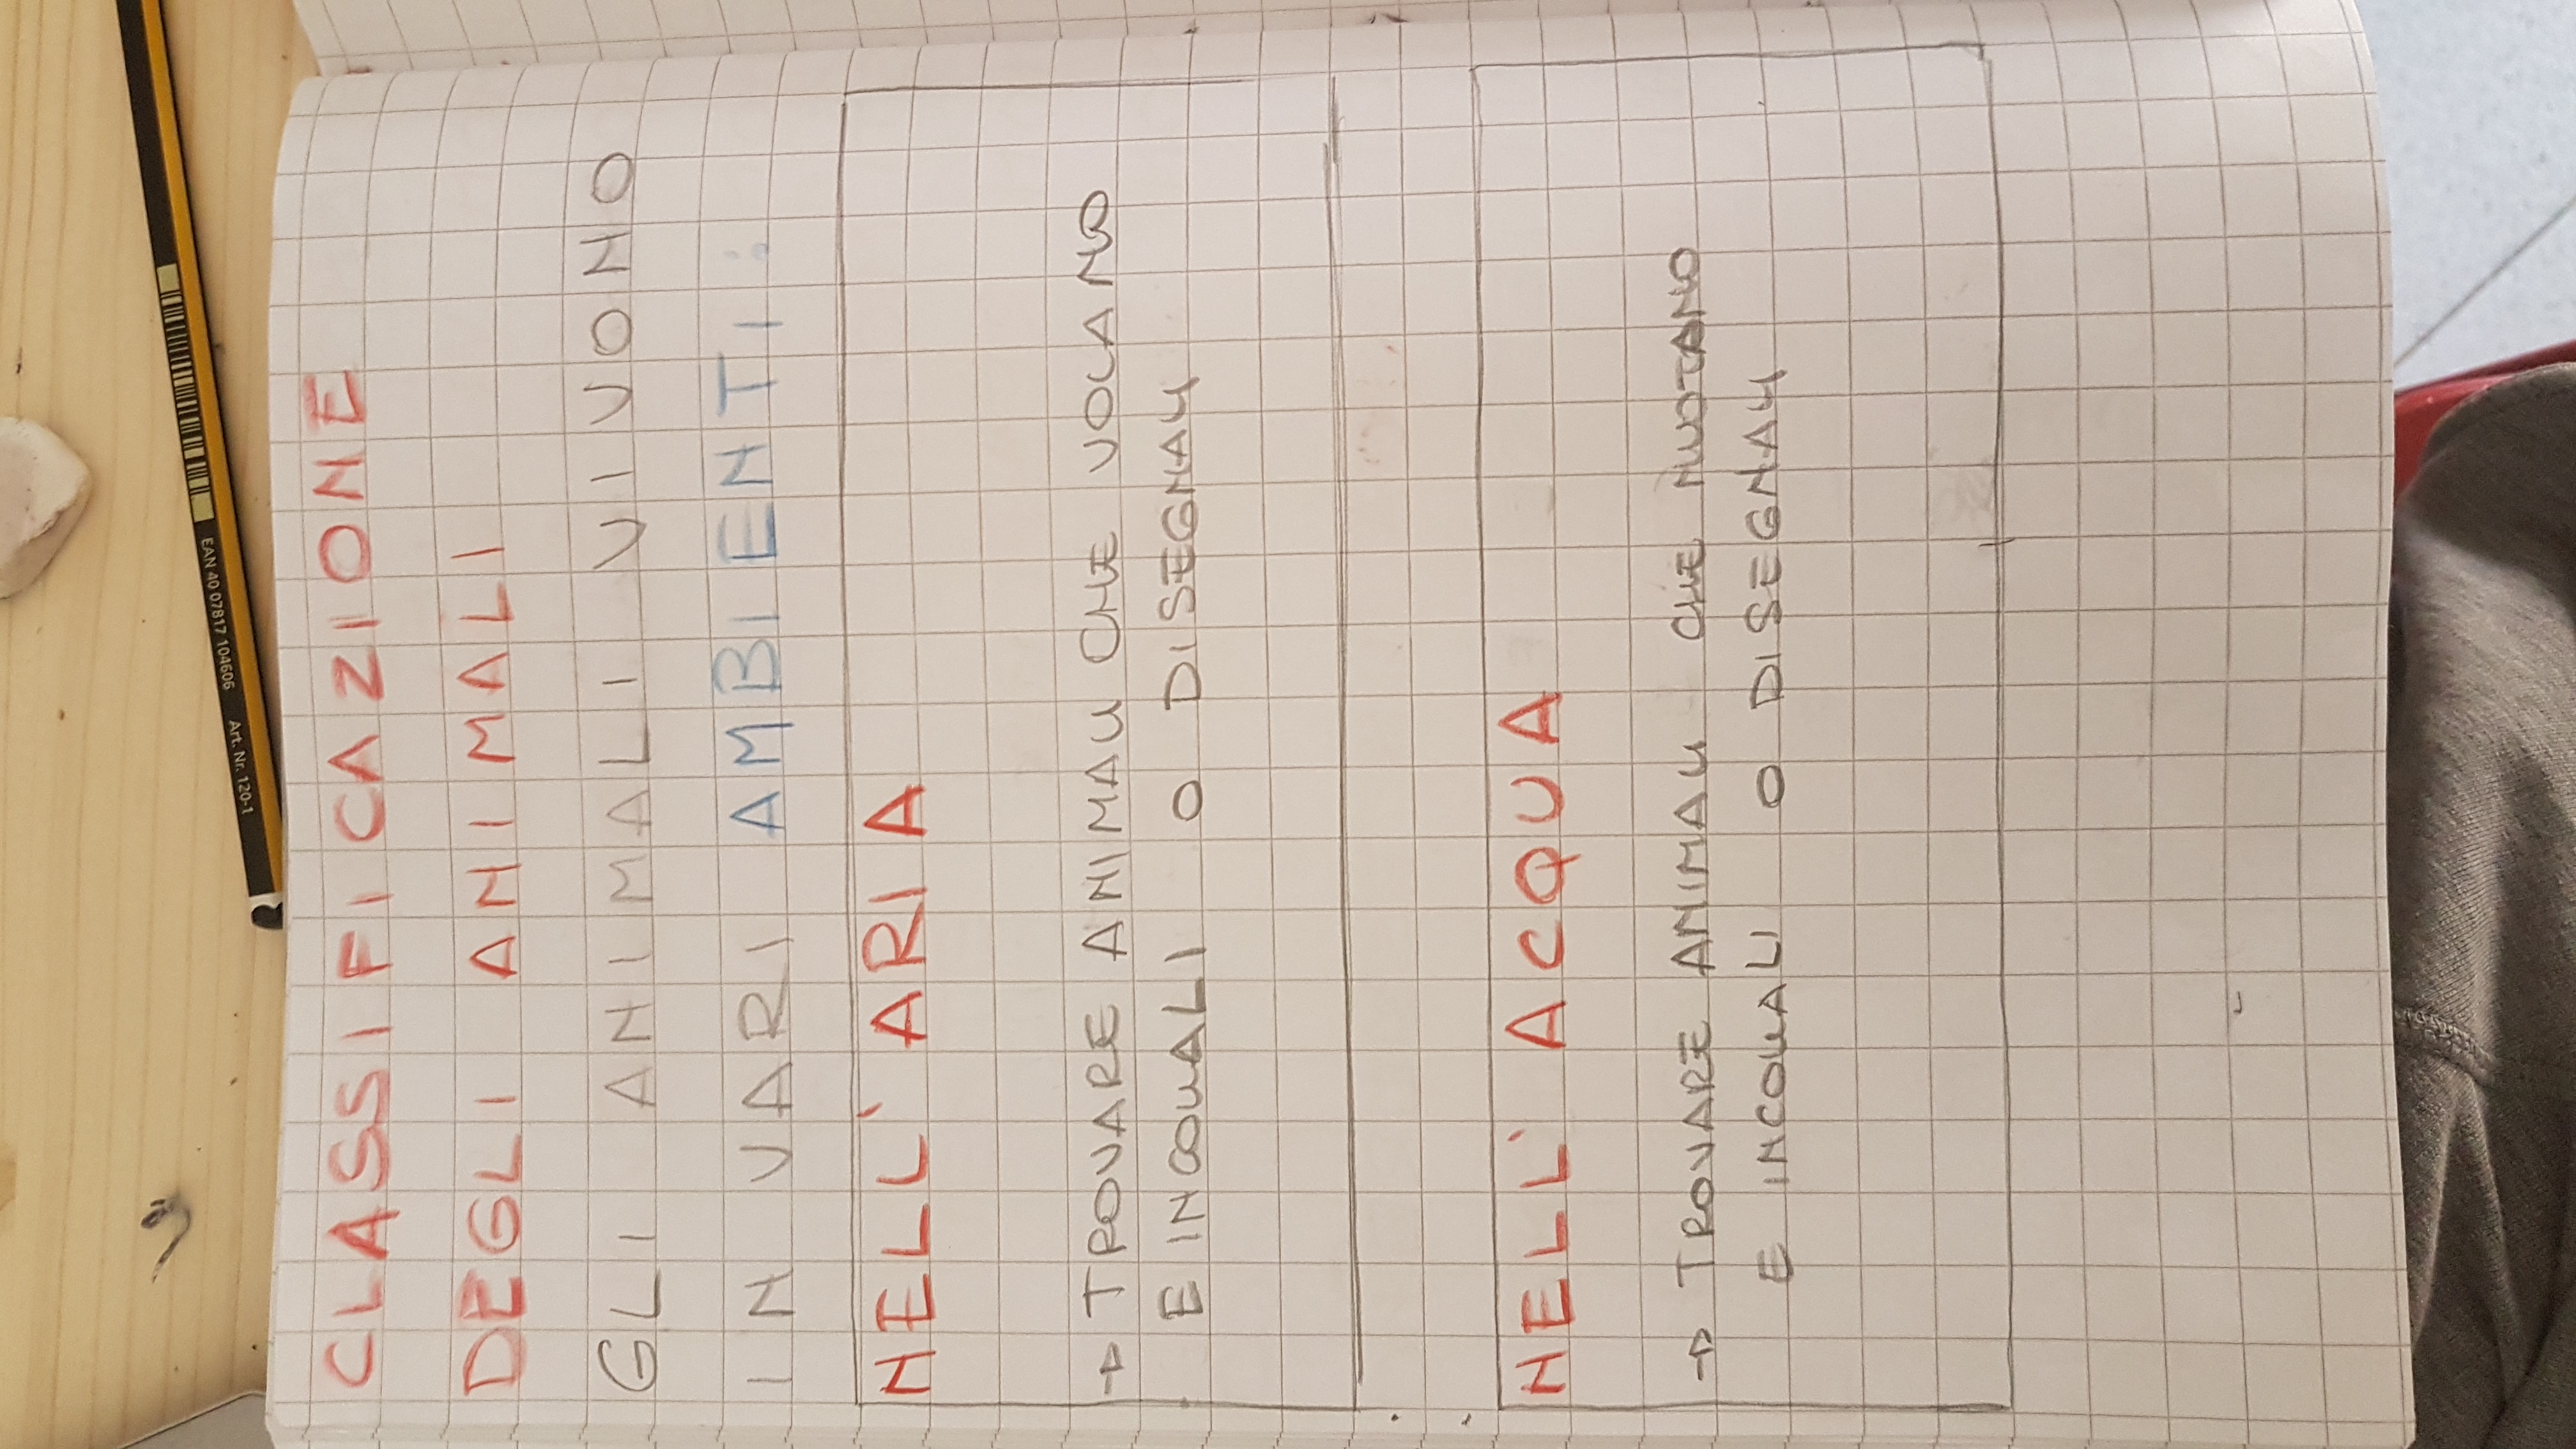 EAN 40 07817 104606 Art. Nr. 120-1
CLASSIFICAZIONE
DEGLI ANIMALI
GLI ANIMALI VIVONO
IN VARI AMBIENTI:
NELL'ARIA
→ TROVARE ANIMALI CHE VOLANO
E INCOLLALI O DISEGNALI
NELL'ACQUA
→ TROVARE ANIMALI CHE NUOTANO
E INCOLLALI O DISEGNALI